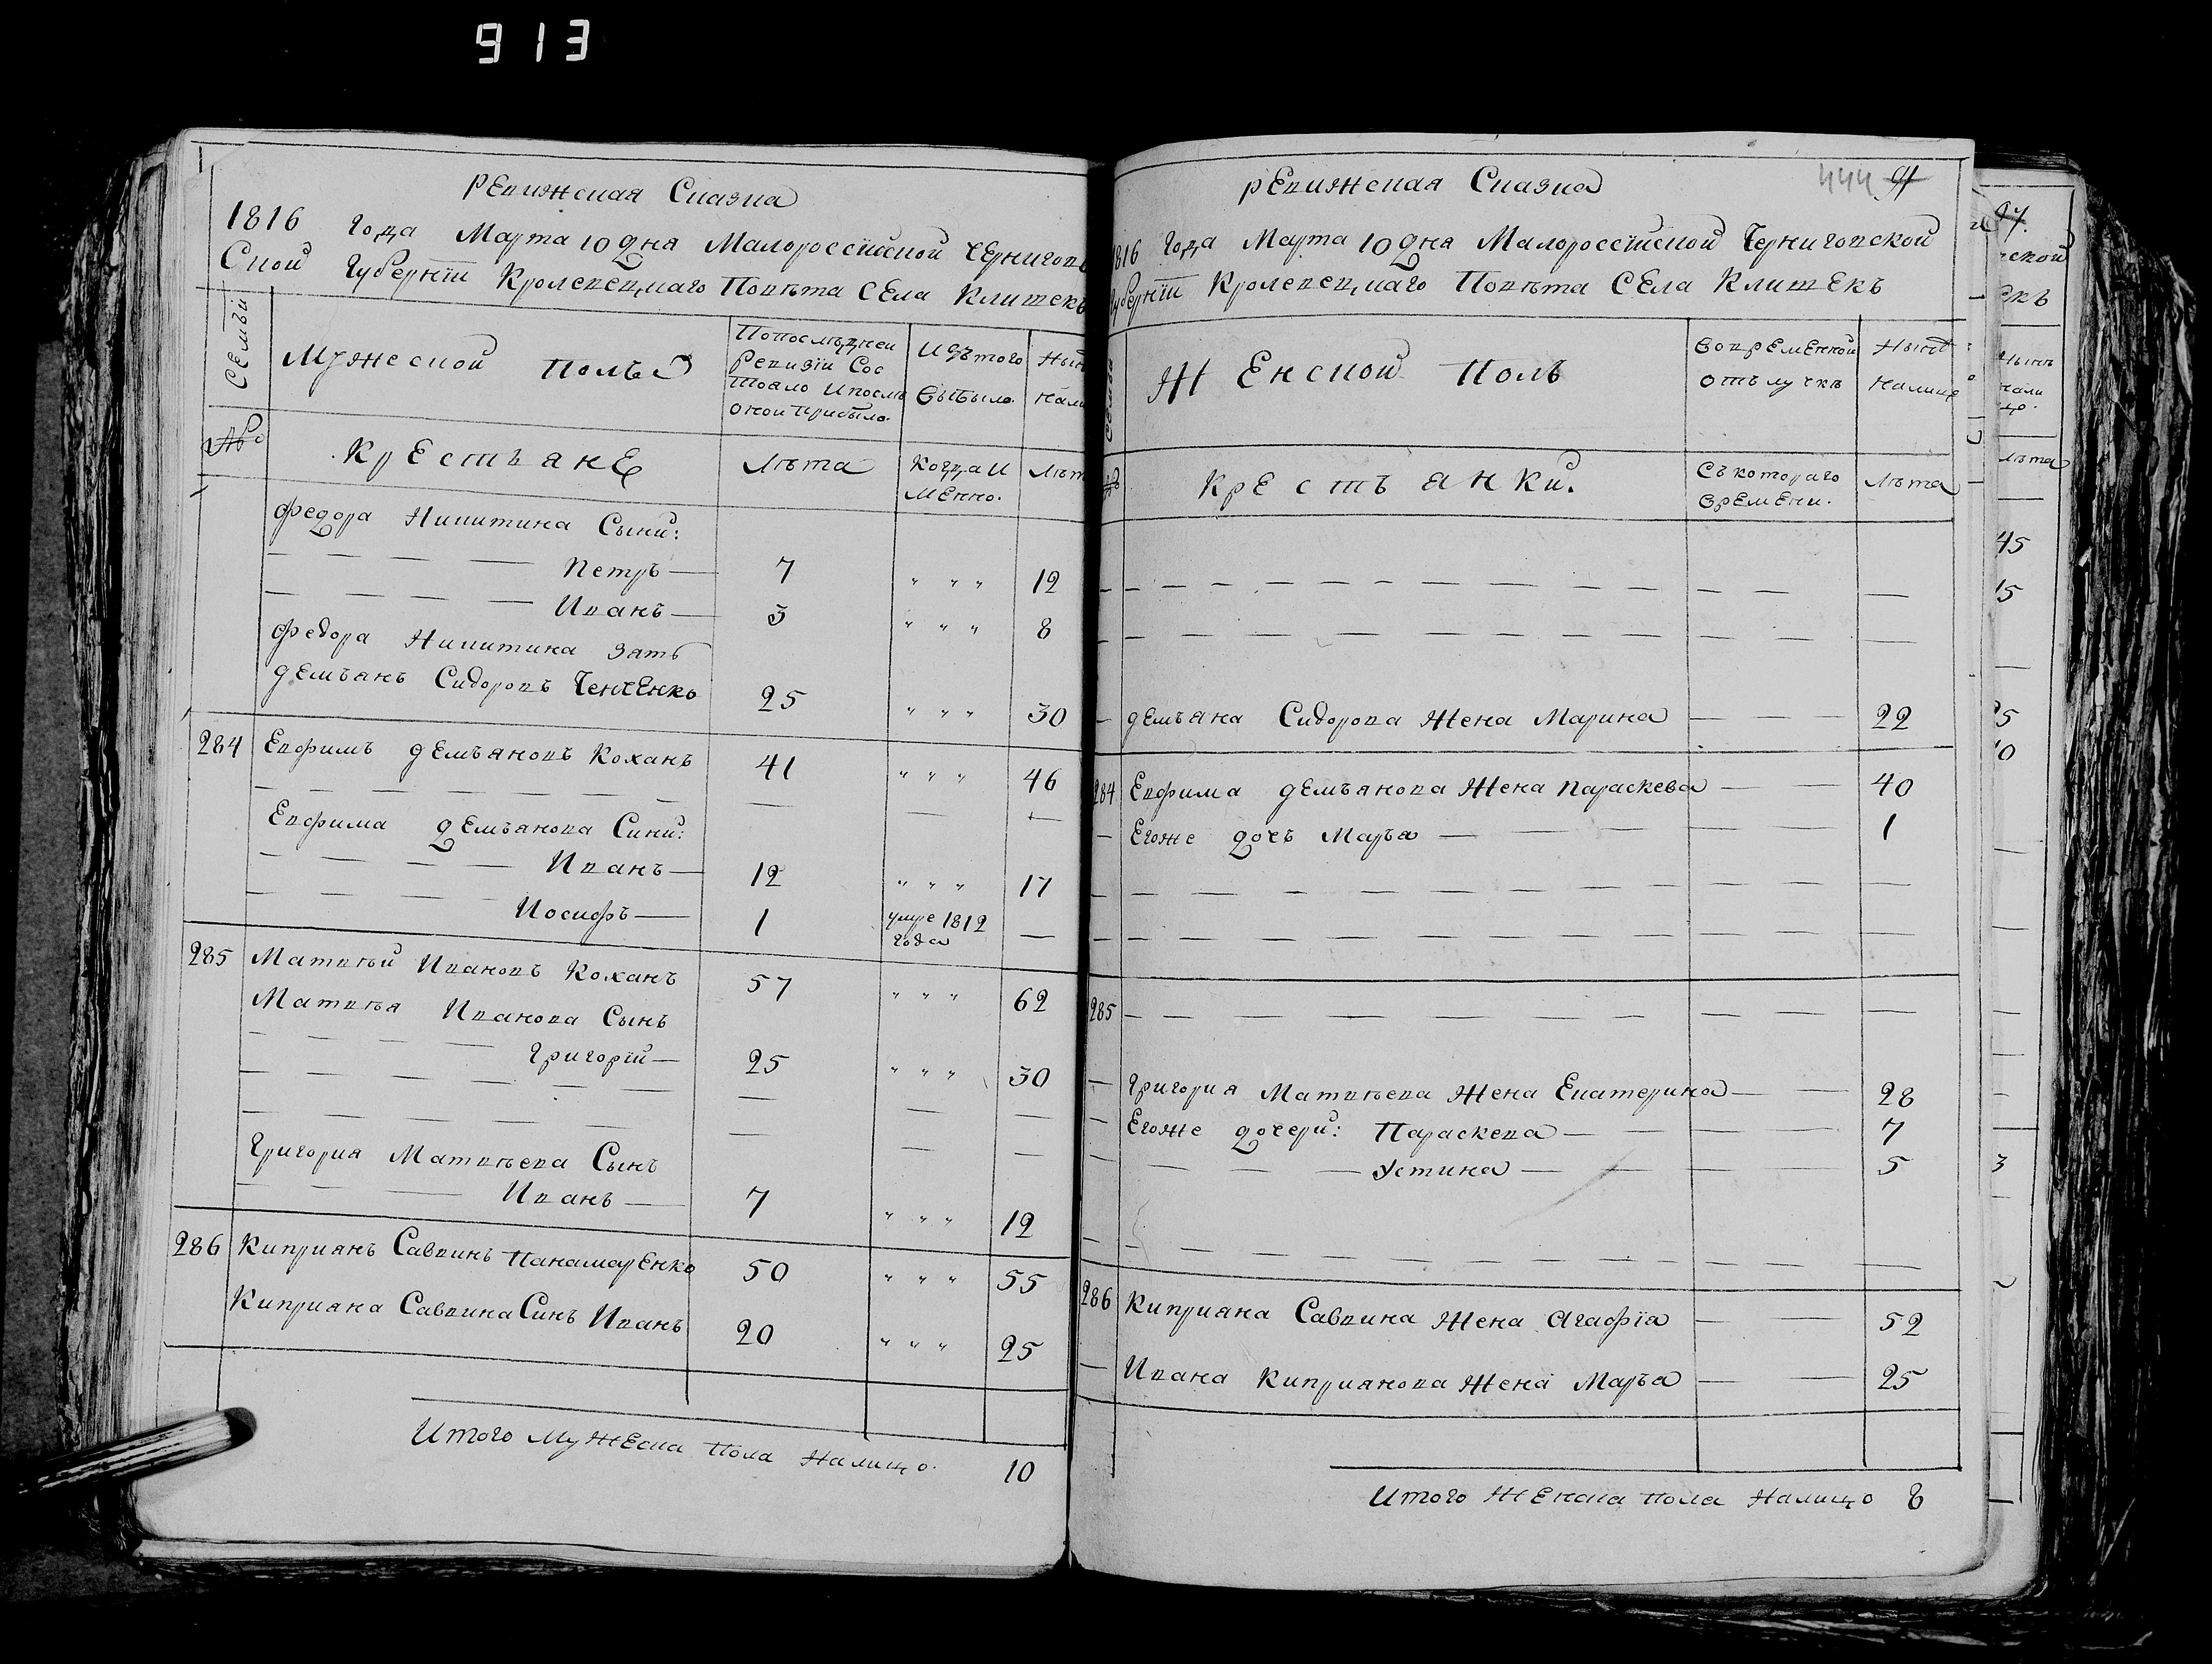 913
Ревижская Сказка
1816 года Марта 10 дня Малороссїйской Чернигов
Ской Губернїи Кролевецкаго Повѣта Села Клишекъ
Семьи
Мужеской полъ
Попослѣдней
Ревизїи Сос
тояло ипослѣ
оной прибыло.
Изътого
выбыло.
Нын
нали
№
Крестьяне
Лѣта
Когда и
менно.
Лѣт
Федора Никитина Сыни:
— — — — — Петръ — 7 " " " 12
— — — — — Иванъ — 3 " " " 8
Федора Никитина зять
Демьянъ Сидоровъ Ченченко 25 " " " 30
284 Евфимъ Демьяновъ Коханъ 41 " " " 46
— — — — — — — — — —
Евфима Демьянова Сини:
— — — — — Иванъ — 12 " " " 17
— — — — — Иосифъ — 1 умре 1812 —
года
285 Матвѣй Ивановъ Коханъ 57 " " " 62
Матвѣя Иванова Сынъ
— — — — Григорїй — 25 " " " 30
— — — — — — — — —
— — — — — — — — —
Григория Матвѣева Сынъ
— — — Иванъ — 7 " " " 12
286 Киприянъ Саввинъ Панамаренко 50 " " " 55
Киприяна Саввина Синъ Иванъ 20 " " " 25
Итого Мужеска пола Налицо. 10
Ревижская Сказка
444 91
1816 года Марта 10 дня Малороссїйской Черниговской
Губернїи Кролевецкаго Повѣта Села Клишекъ
Семьи
Женской Полъ
вовременной
отълучкѣ
Нынѣ
налицо
№
Крестьянки.
Съкотораго
времени.
Лѣта
— — — — — — — — — — — —
— — — — — — — — — — — —
— Демьяна Сидорова Жена Марина — — 22
284 Евфима Демьянова Жена Параскева — — 40
— Егоже дочь Марья — — — — 1
— — — — — — — — — — — —
— — — — — — — — — — — —
285 — — — — — — — — — — —
— Григория Матвѣева Жена Екатерина — — 28
— Егоже дочери: Параскева — — — — 7
— — — — Устина — — — — 5
— — — — — — — — — — — —
286 Киприяна Саввина Жена Агафїя — — 52
— Ивана Киприянова Жена Марья — — 25
Итого Женска пола Налицо 8
ской
екъ
нынѣ
нали
цо.
лѣта
45
15